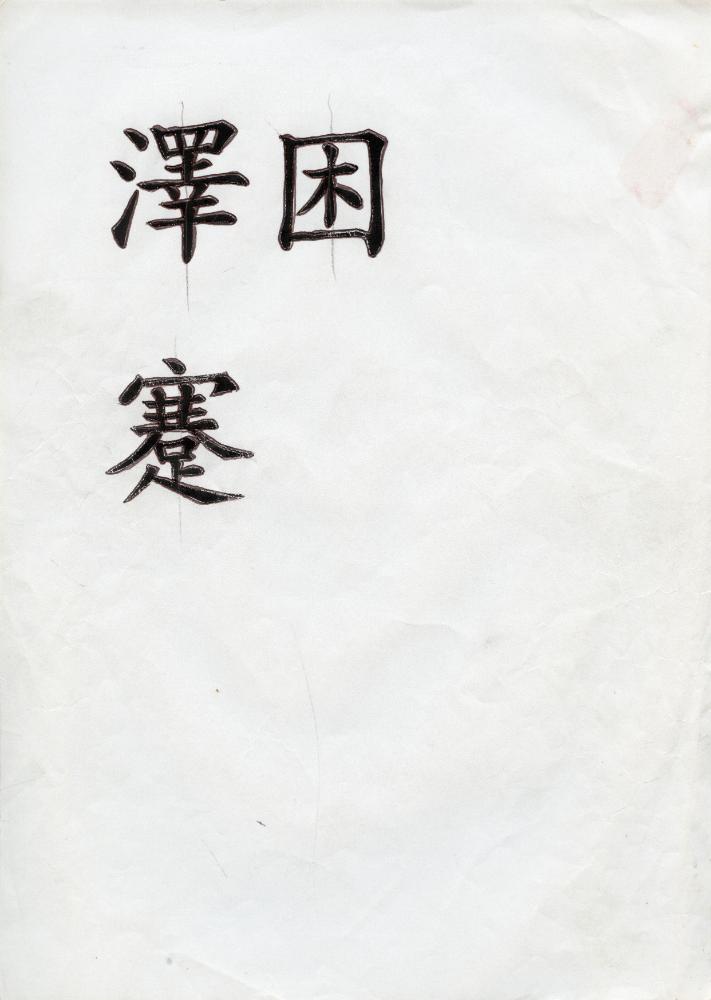 澤困
蹇